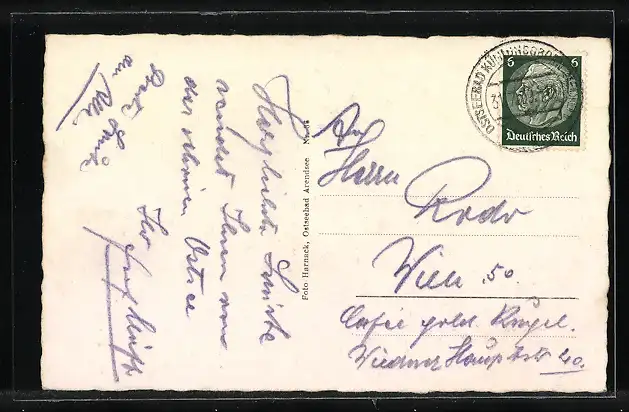 Herzlichste Grüsse
sendet Ihnen von
der schönen Ostsee
Ihr
an Alle.
Foto Harnack, Ostseebad Arendsee
An
Herrn
Rodo
Wien 50.
Cafe gold. Kugel.
Wiedner Hauptstr 40.
OSTSEEBAD KÜHLUNGSBORN
6 6
Deutsches Reich